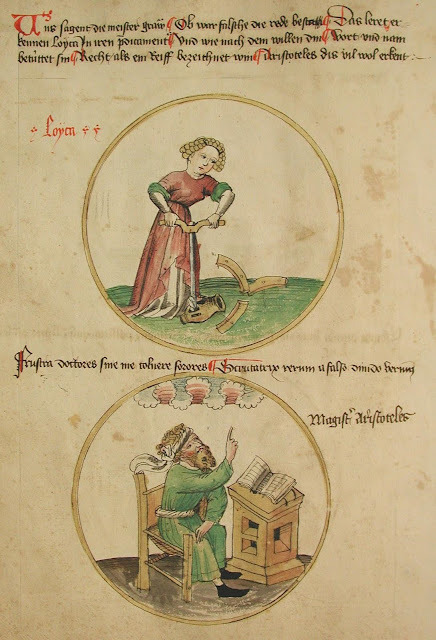 Uns sagent die meister graw Ob war falsche die rede Das leret er
kennen Loyca In iren pdicament Und wie nach dem willen din wort und nam
betútet sin Recht als ein Reiff bezeichnet win Aristoteles dis vil wol erkent
Loyca
Frustra doctores sine me coluere sorores Scrutatrix rerum a falso divido verum
Magist' Aristoteles